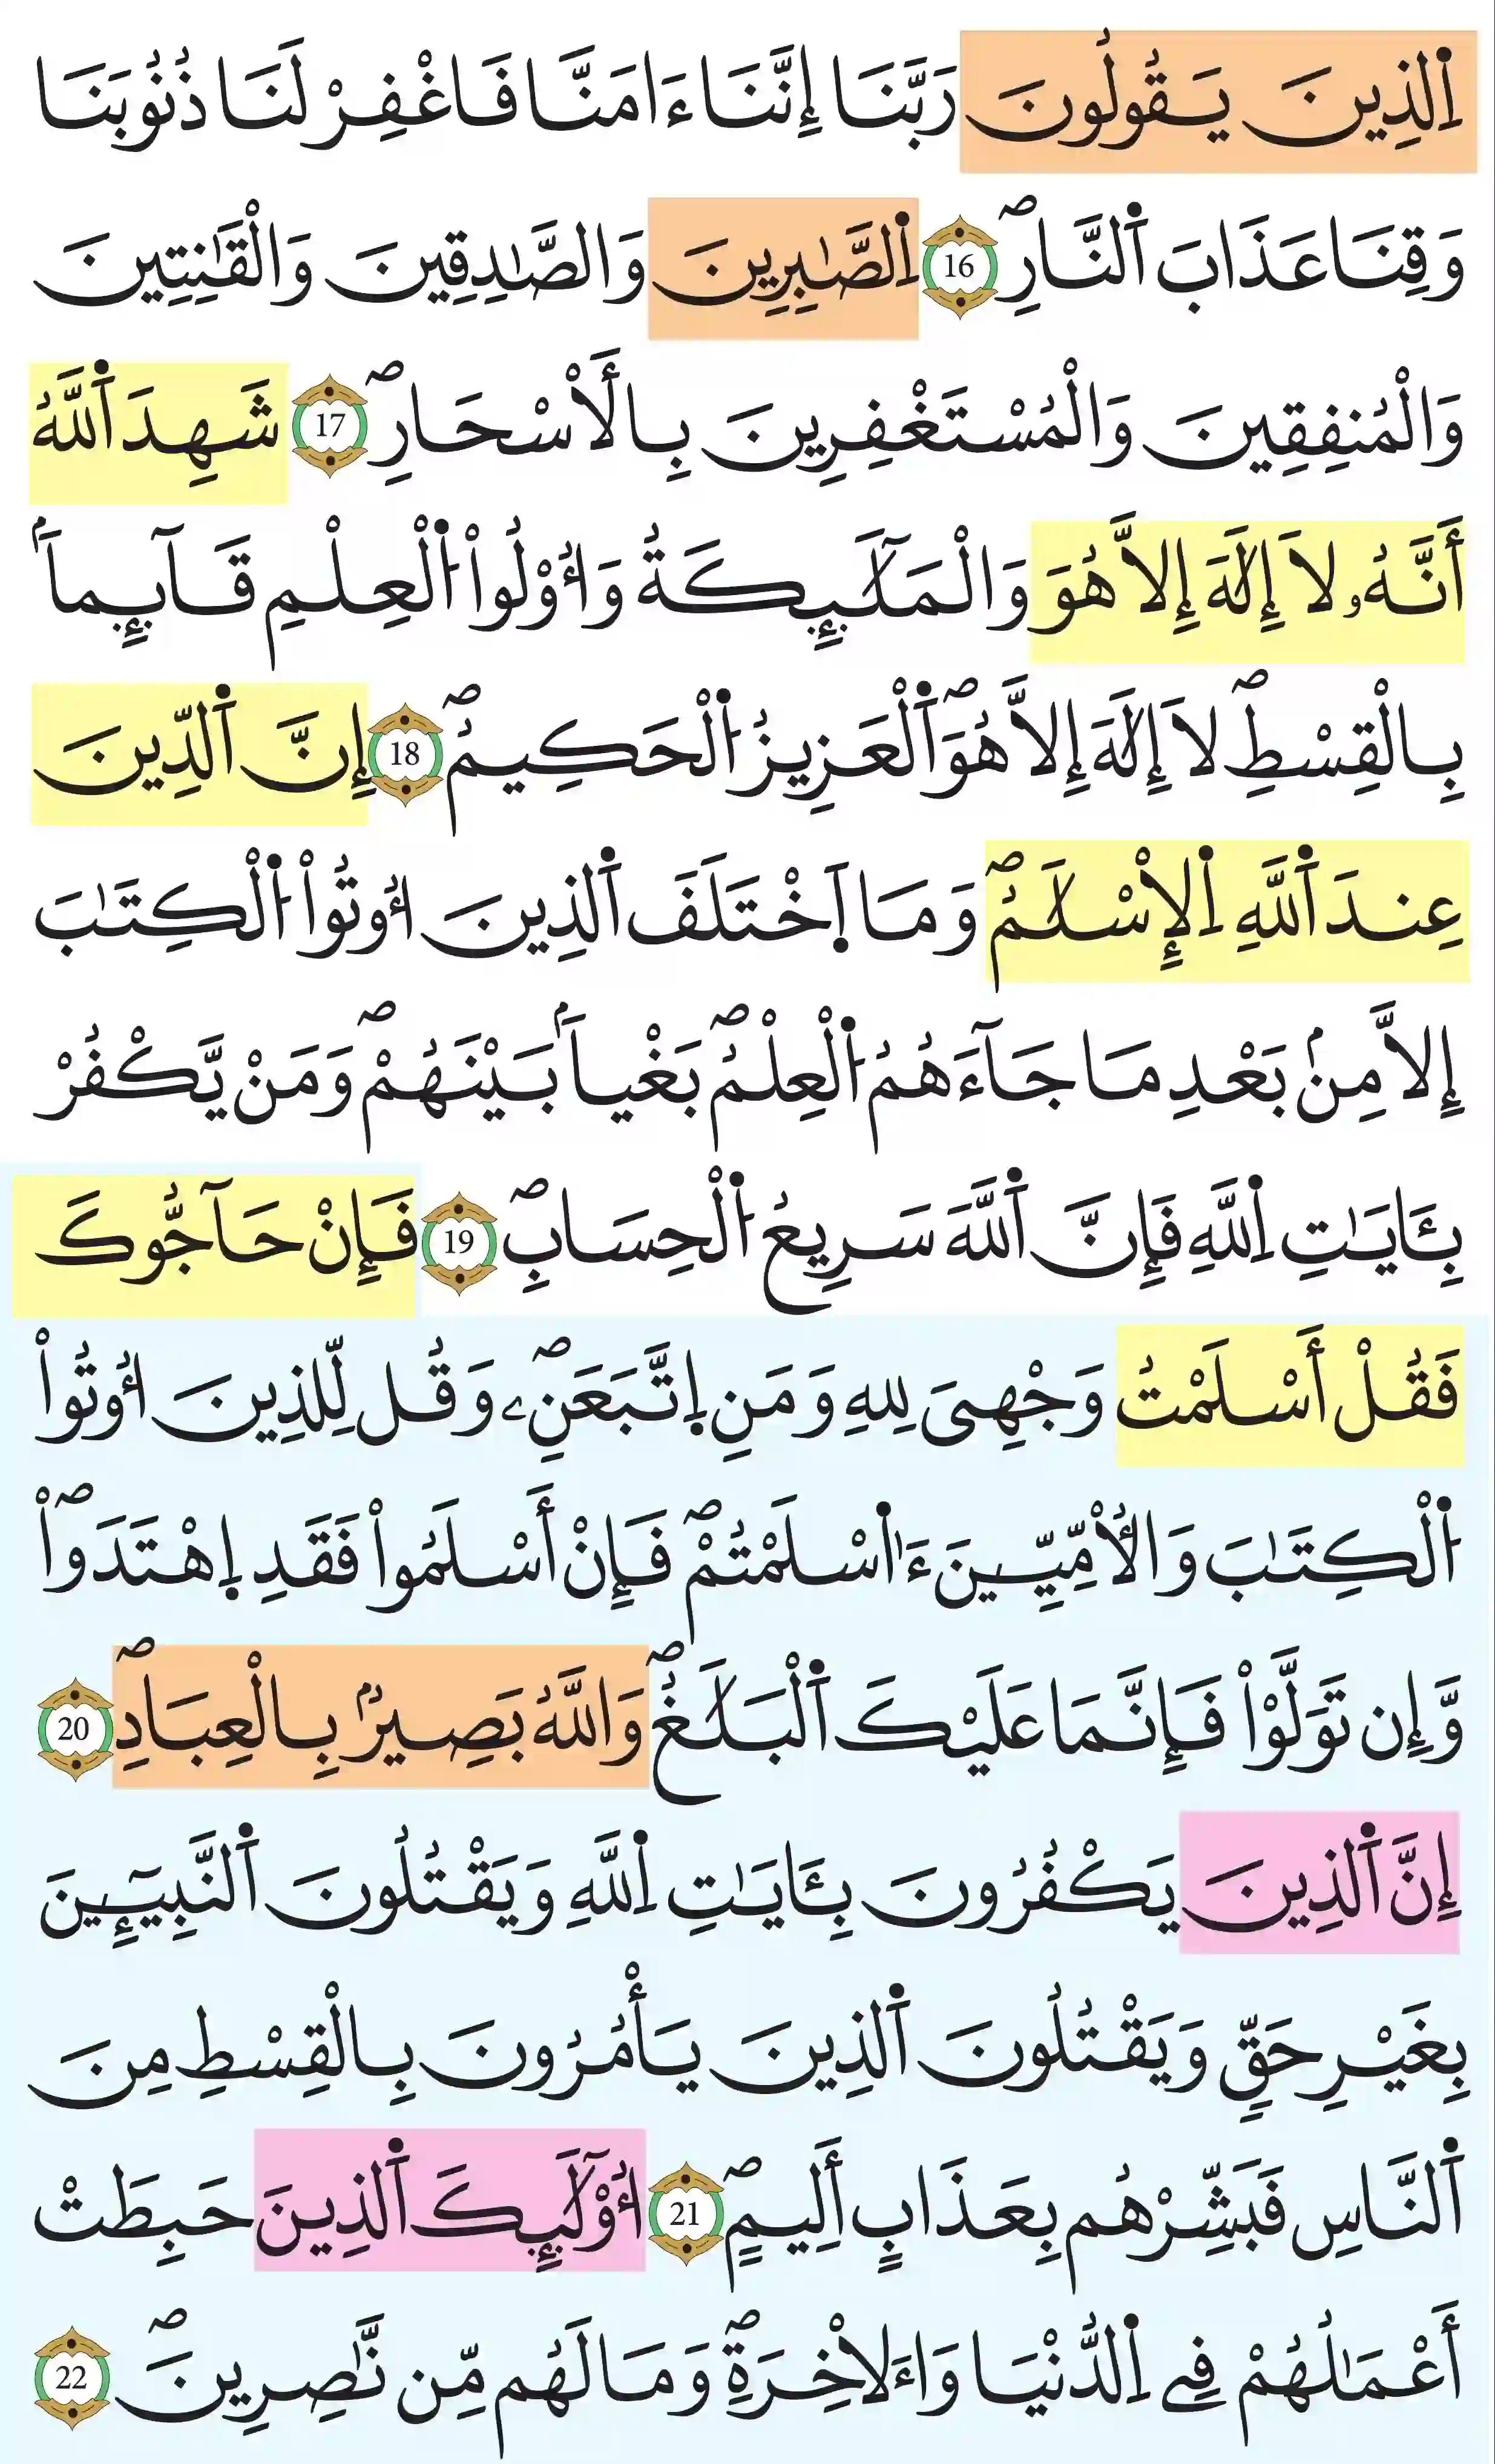 اِ۬لذِينَ يَقُولُونَ رَبَّنَا إِنَّنَا ءَامَنَّا فَاغْفِرْ لَنَا ذُنُوبَنَا
وَقِنَا عَذَابَ اَ۬لنَّارِۖ 16 اِ۬لصَّٰبِرِينَ وَالصَّٰدِقِينَ وَالْقَٰنِتِينَ
وَالْمُنفِقِينَ وَالْمُسْتَغْفِرِينَ بِالَاسْحَارِۖ 17 شَهِدَ اَ۬للَّهُ
أَنَّهُۥ لَا إِلَٰهَ إِلَّا هُوَ وَالْمَلَٰٓئِكَةُ وَأُوْلُواْ اُ۬لْعِلْمِ قَآئِماَۢ
بِالْقِسْطِۖ لَا إِلَٰهَ إِلَّا هُوَۖ اَ۬لْعَزِيزُ اُ۬لْحَكِيمُۖ 18 إِنَّ اَ۬لدِّينَ
عِندَ اَ۬للَّهِ اِ۬لِاسْلَٰمُۖ وَمَا اَ۪خْتَلَفَ اَ۬لذِينَ أُوتُواْ اُ۬لْكِتَٰبَ
إِلَّا مِنۢ بَعْدِ مَا جَآءَهُمُ اُ۬لْعِلْمُۖ بَغْياَۢ بَيْنَهُمْۖ وَمَنْ يَّكْفُرْ
بِـَٔايَٰتِ اِ۬للَّهِ فَإِنَّ اَ۬للَّهَ سَرِيعُ اُ۬لْحِسَابِۖ 19 فَإِنْ حَآجُّوكَ
فَقُلْ أَسْلَمْتُ وَجْهِيَ لِلهِ وَمَنِ اِ۪تَّبَعَنِۦۖ وَقُل لِّلذِينَ أُوتُواْ
اُ۬لْكِتَٰبَ وَالُامِّيِّـۧنَ ءَا۬سْلَمْتُمْۖ فَإِنْ أَسْلَمُواْ فَقَدِ اِ۪هْتَدَواْۖ
وَّإِن تَوَلَّوْاْ فَإِنَّمَا عَلَيْكَ اَ۬لْبَلَٰغُۖ وَاللَّهُ بَصِيرُۢ بِالْعِبَادِۖ 20
إِنَّ اَ۬لذِينَ يَكْفُرُونَ بِـَٔايَٰتِ اِ۬للَّهِ وَيَقْتُلُونَ اَ۬لنَّبِيٓـِٕينَ
بِغَيْرِ حَقٍّ وَيَقْتُلُونَ اَ۬لذِينَ يَأْمُرُونَ بِالْقِسْطِ مِنَ
اَ۬لنَّاسِ فَبَشِّرْهُم بِعَذَابٍ أَلِيمٍۖ 21 أُوْلَٰٓئِكَ اَ۬لذِينَ حَبِطَتْ
أَعْمَٰلُهُمْ فِے اِ۬لدُّنْيَا وَاءَلَاخِرَةِۖ وَمَا لَهُم مِّن نَّٰصِرِينَۖ 22